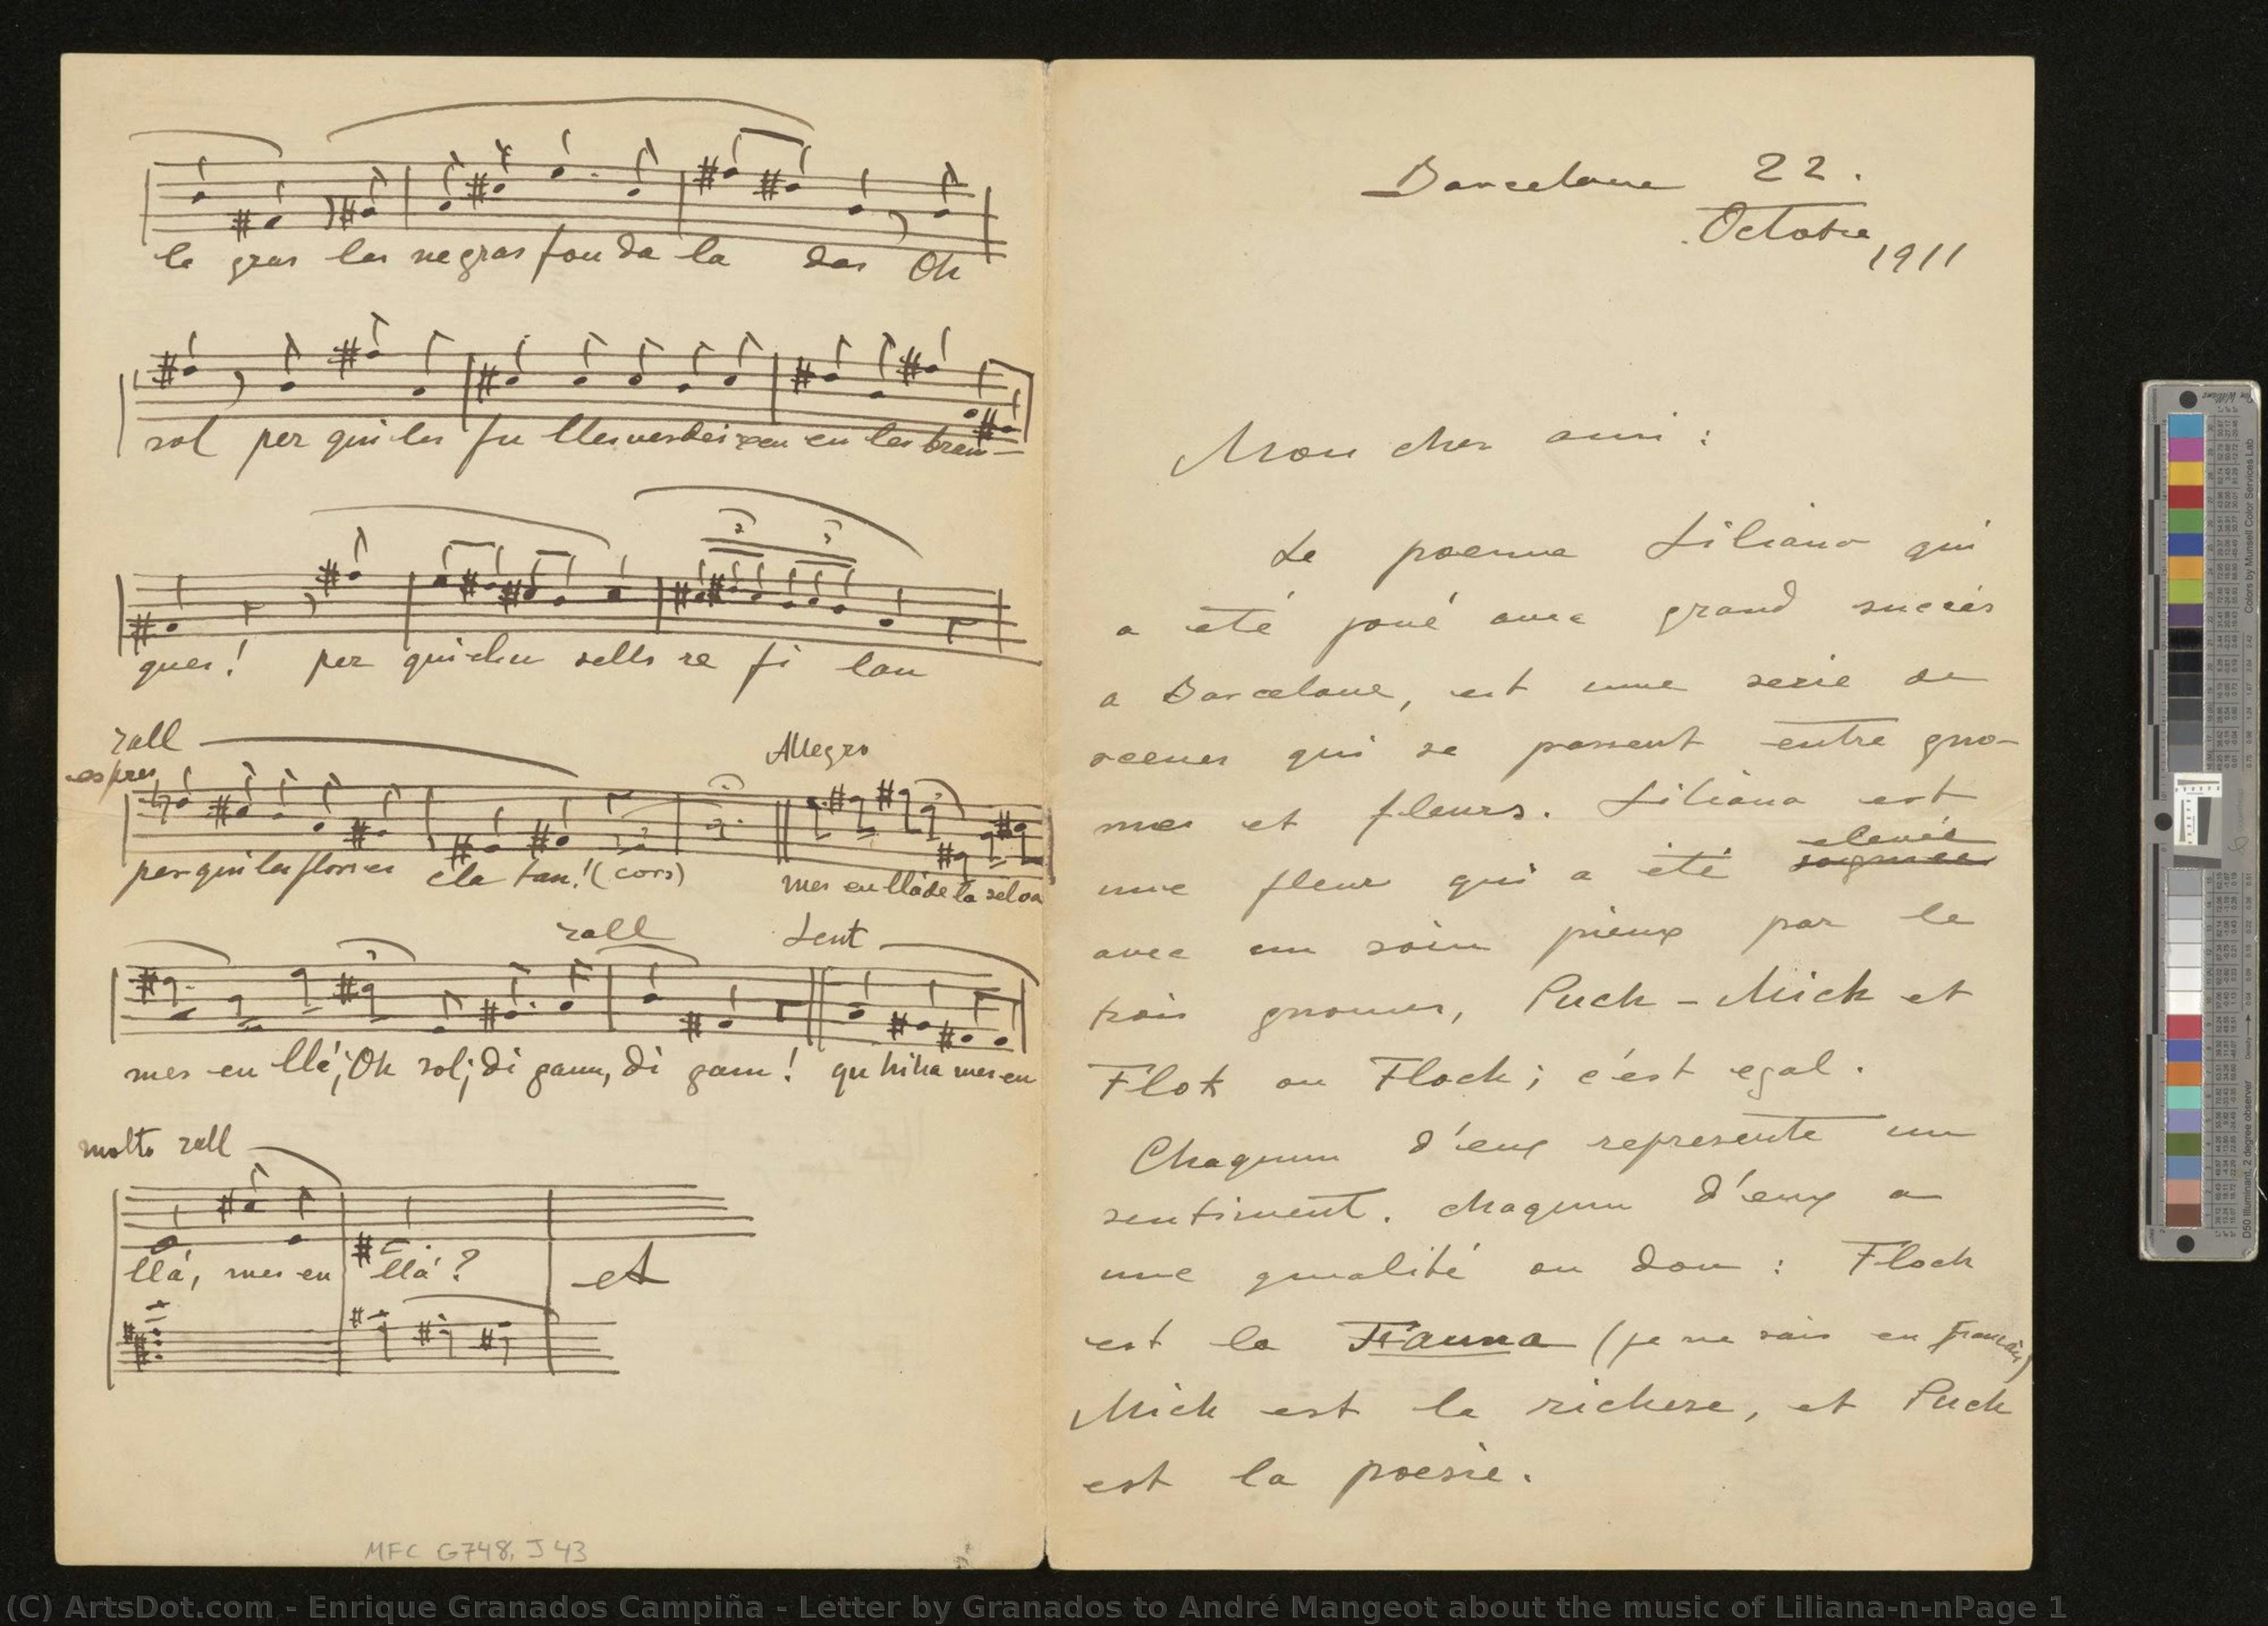 le gras les negras fon da la das Oh
sol per qui les fu lles verdeixen en les bran-
ques! per qui els sells re fi lan
rall
espres
Allegro
per qui les flors es cla tan! (cors) mes enllà de la selva
rall Lent
mes en llá; Oh sol; di gam, di gam! qu hi ha mes en
molto rall
llá, mes en llá?
et
MFC G748, J 43
Barcelone 22.
Octobre 1911
Mon cher ami:
Le poeme Liliana qui
a eté joué avec grand succès
a Barcelone, est une serie de
scenes qui se passent entre gno-
mes et fleurs. Liliana est
une fleur qui a eté soignée elevée
avec un soin pieux par le
trois gnomes, Puck - Mick et
Flok ou Flock; c'est egal.
Chaqun d'eux represente un
sentiment. chaqun d'eux a
une qualité ou don: Flock
est la Fauna (je ne sais en français)
Mick est la richesse, et Puck
est la poesie.
(C) ArtsDot.com - Enrique Granados Campiña - Letter by Granados to André Mangeot about the music of Liliana-n-nPage 1